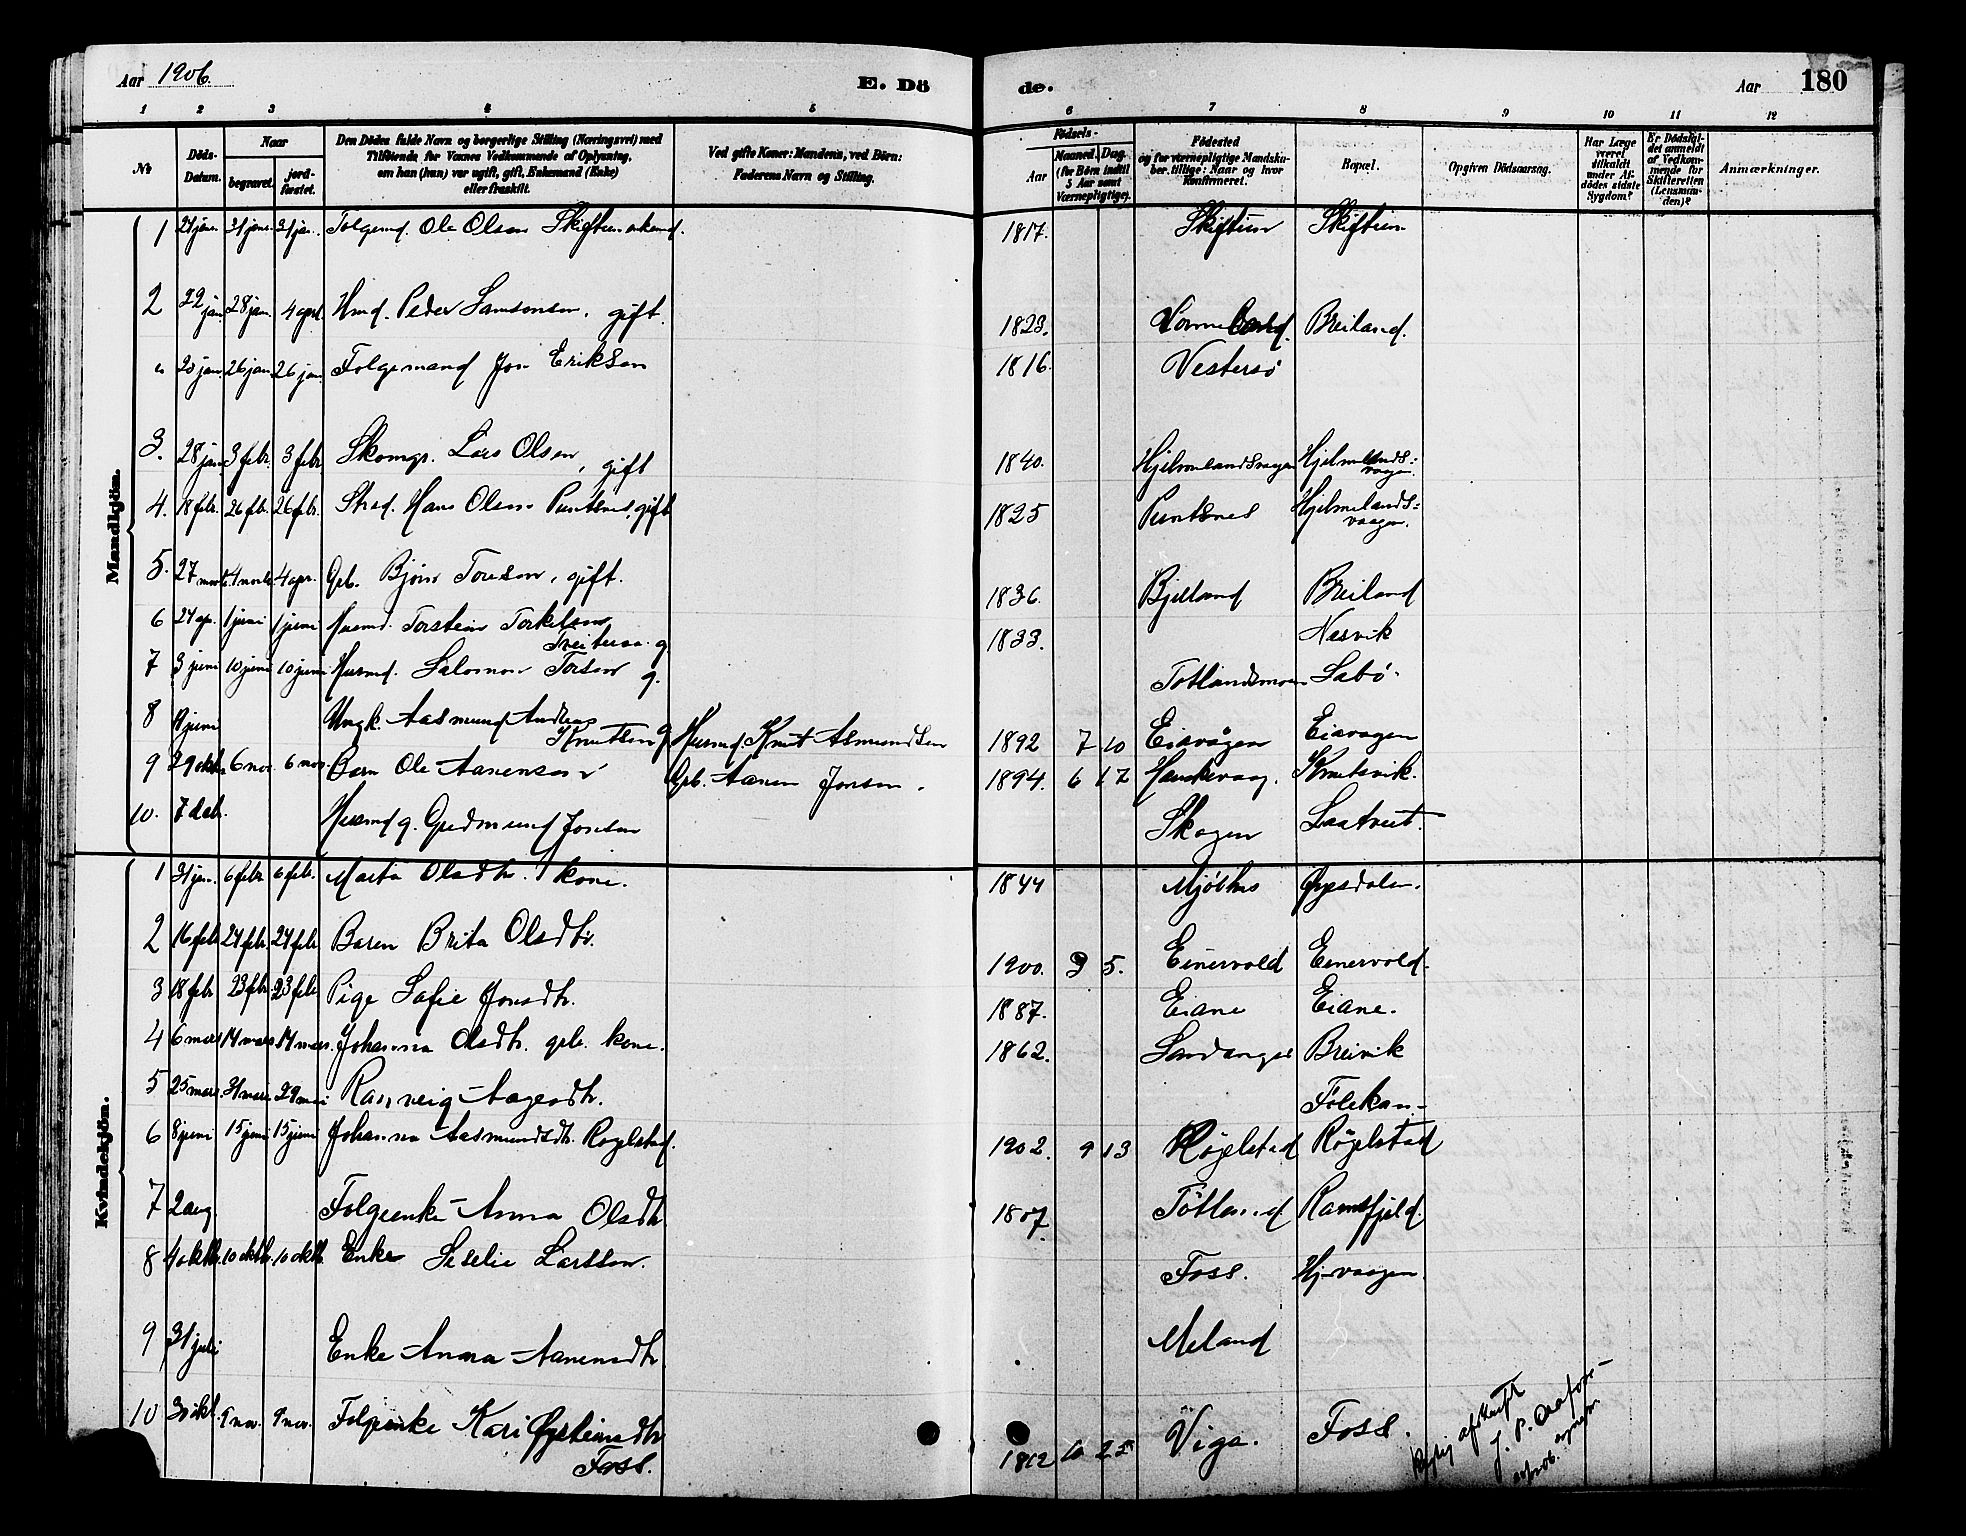 Aar 1906.
E. Dö
de.
Aar
180
1 2 3 4 5 6 7 8 9 10 11 12
No
Döds-
Datum.
Naar
begravet.
jord-
fæstet.
Den Dödes fulde Navn og borgerlige Stilling (Næringsvei) med
Tilföiende for Voxnes Vedkommende af Oplysning,
om han (hun) var ugift, gift, Enkemand (Enke)
eller fraskilt.
Ved gifte Koner: Mandens, ved Börn:
Faderens Navn og Stilling.
Födsels-
Aar
Maaned. Dag.
(for Börn indtil
5 Aar samt
Værnepligtige).
Födested
og for værnepligtige Mandska-
ber tillige: Naar og hvor
Konfirmeret.
Bopæl.
Opgiven Dödsaarsag.
Har Læge
været
tilkaldt
under Af-
dödes sidste
Sygdom?
Er Dödsfal-
det anmeldt
af Vedkom-
mende for
Skifteretten
(Lensman-
den)?
Anmærkninger.
Mandkjön.
1 21 jan. 31 jan. 31 jan. Folgemd. Ole Olsen Skiftun enkemd. 1817. Skiftun Skiftun
2 22 jan. 28 jan. 4 april Hmd. Peder Samsonsen, gift. 1823. Breiland.
" 23 jan. 26 jan. 26 jan. Folgemand Jon Eriksen 1816. Vestersö
3. 28 jan. 3 febr. 3 febr. Skomgr. Lars Olsen, gift 1840. Hjelmelandsvagen Hjelmelands-
vagen.
4. 18 febr. 26 febr. 26 febr. Hans Olsen Puntsnes, gift 1825 Puntsnes Hjelmelands-
vaagen.
5. 27 4 apr. Grb. Björn Toresen, gift. 1836. Bjelland Breiland
6 24 ap. 1 juni 1 juni Husmd. Torstein Torkelsen
g. 1833. Nesvik
7 3 juni 10 juni 10 juni Husmd. Salomon Torsen g. Totlandsmoen Sabö
8 juni Ungk. Aasmund Andreas
Knutsen Husmd. Knut Asmundsen 1892 7 10 Eiavågen Eiavagen
9 29 oktbr 6 nov. 6 nov. Barn Ole Aanensen Grb. Aanen Jonsen. 1894. 6 17 Knutsvik.
10. 7 deb. Husmd g. Gudmund Jonsen Skogen Laatveit.
Kvindekjön.
1 31 jan. 6 febr. 6 febr. Marta Olsdtr. kone. 1844 Mjölhus
2 16 febr 24 febr. 24 febr Baren Brita Olsdtr. 1900. 3 5. Einervold Einervold
3 18 febr 23 febr 23 febr Pige Sofie Jonsdtr. 1887. Eiane Eiane.
4 6 mars 14 mars 14 mars. Johanna Olsdtr. grb. kone. 1862. Sandanger Breivik
5 25 mars. 31 mars. 29 mai Ranveig Aagesdtr.
6 8 juni 15 juni 15 juni Johanna Aasmundsdtr. Rogelstad. 1902. 9 13 Röjelstad Röjelstad
7 2 aug Folgeenke Anna Olsdtr 1807. Tötland Ramsfjeld.
8 4 oktb. 10 oktb. 10 oktb. Enke Siselie Larsson. Foss. Hj-vaagen
9 31 juli Enke Anna Aanensdtr Meland
10 30 okt. 9 nov. 9 nov. Folgeenke Kari Öysteinsdtr
Foss. 1812 10 25 Viga. Foss.
Rigtig afskrift